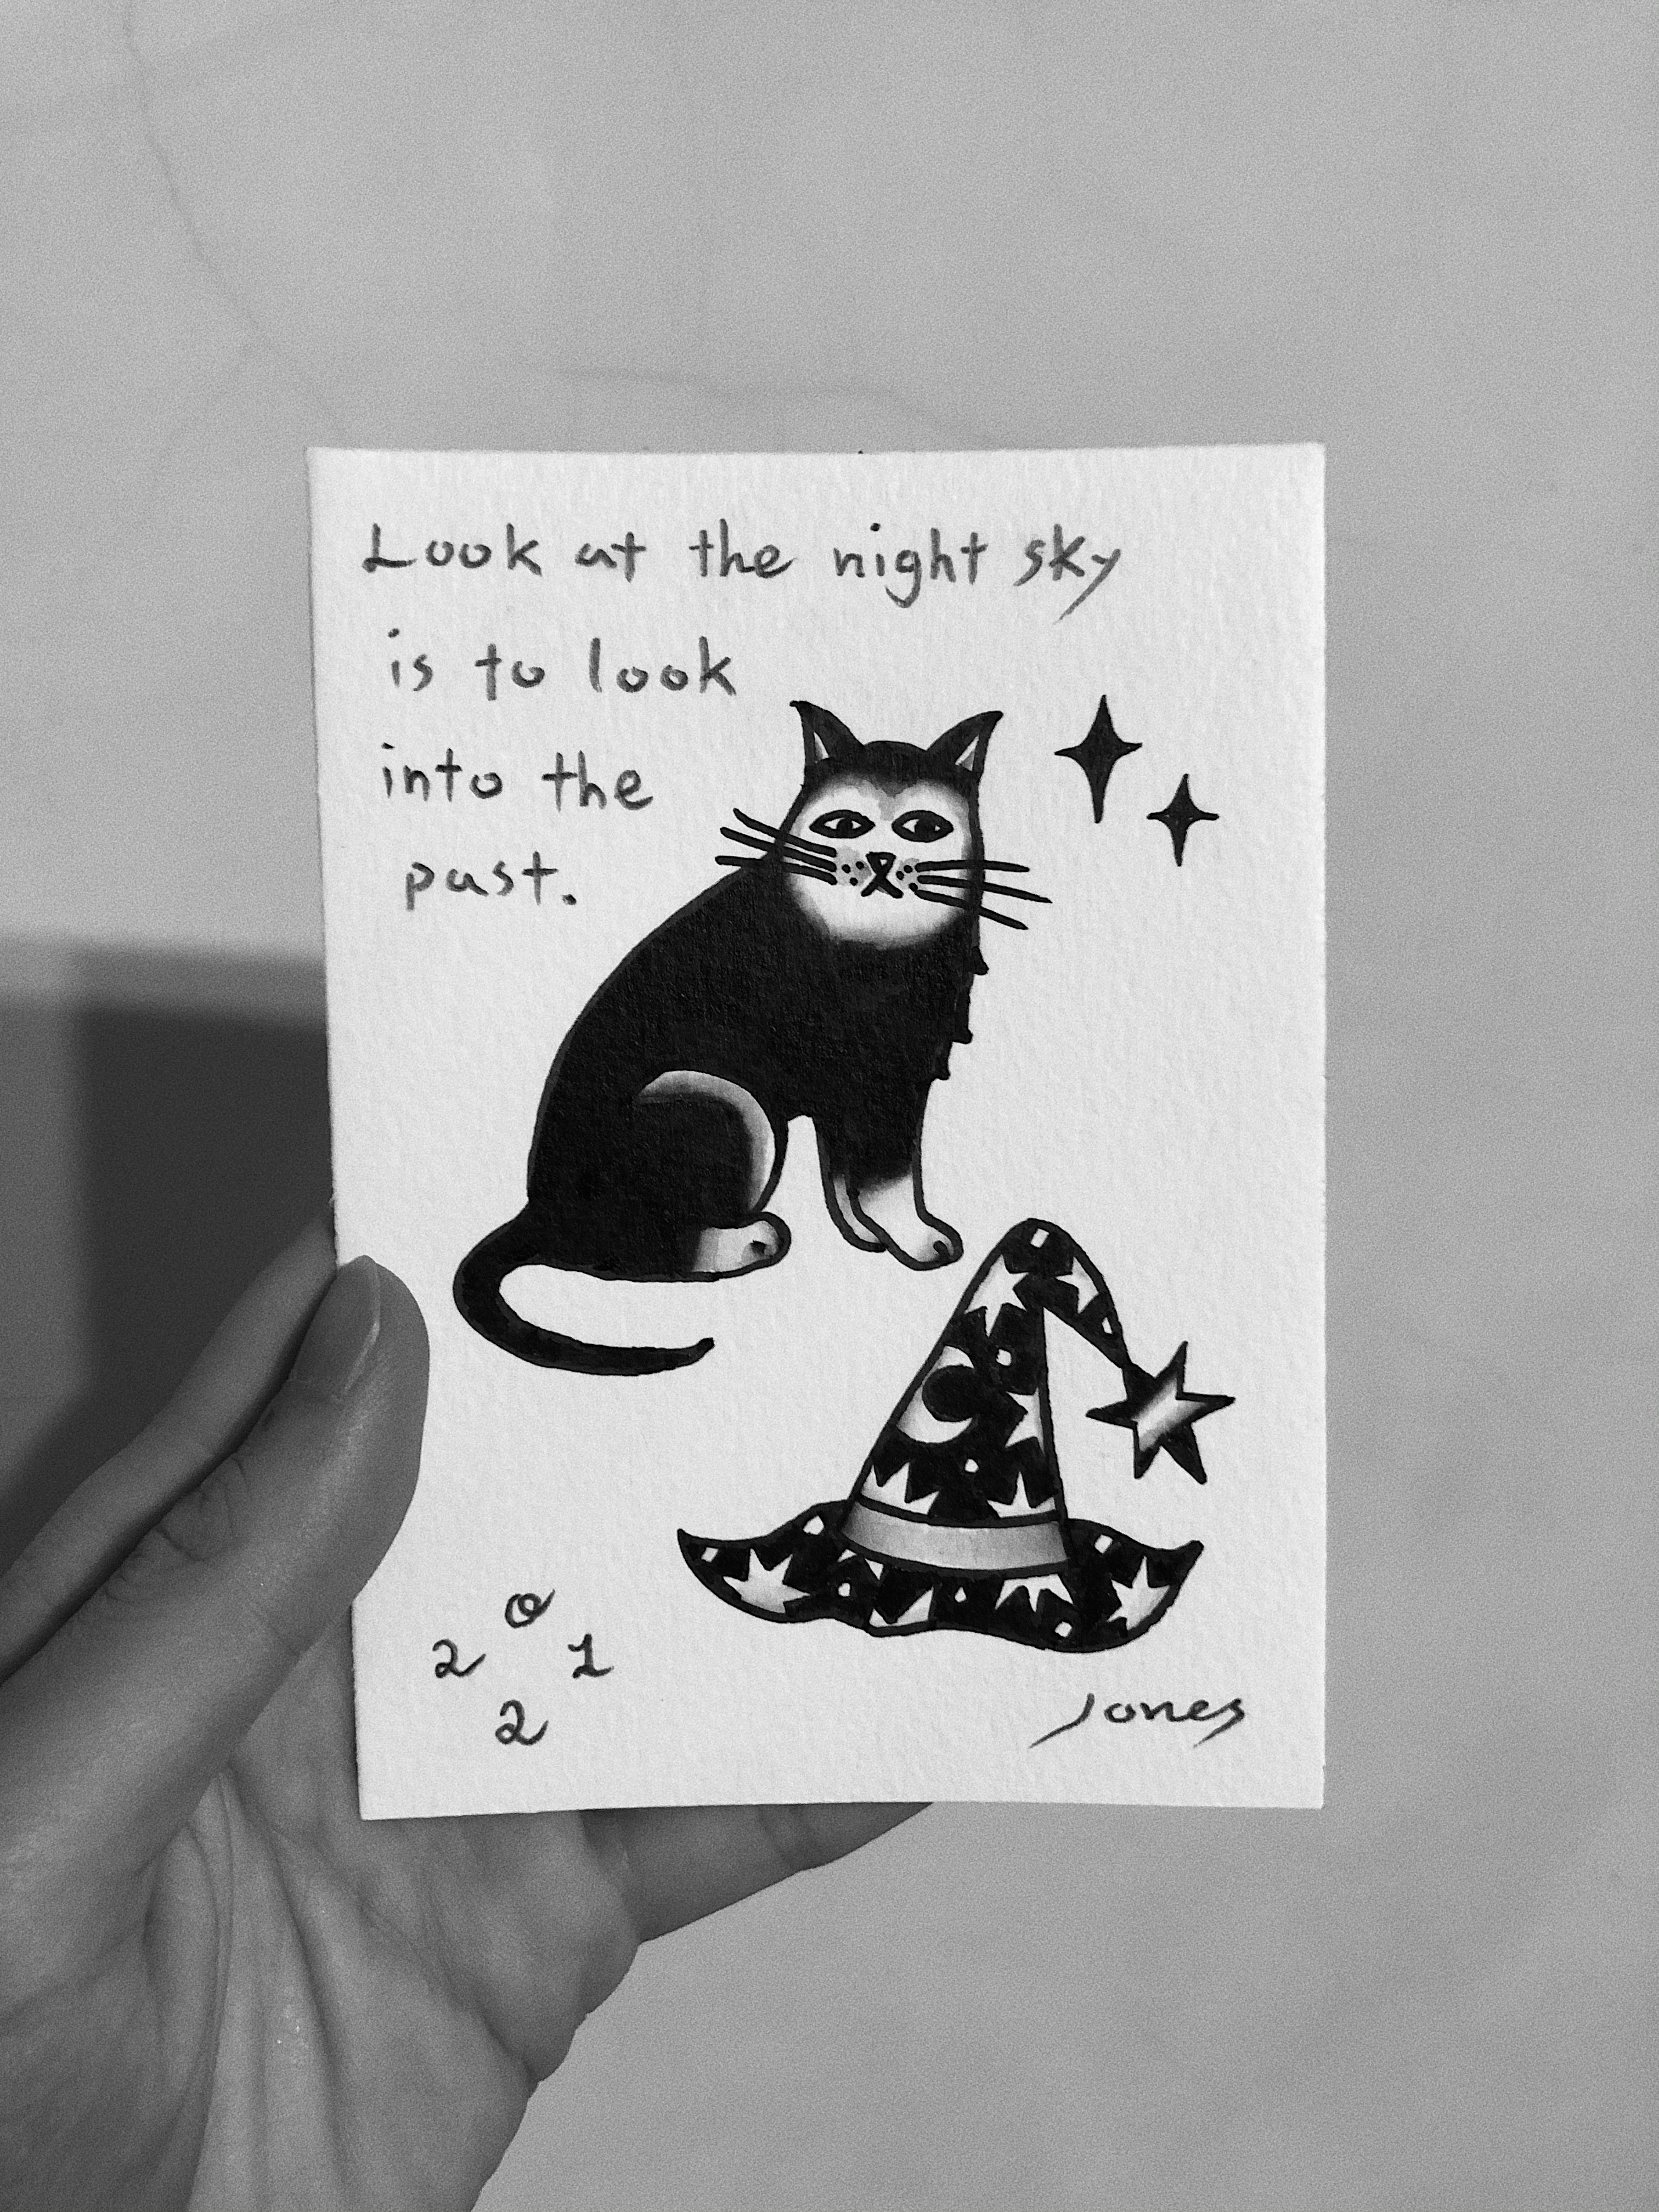 Look at the night sky
is to look
into the
past.
0
2 1
2
Jones